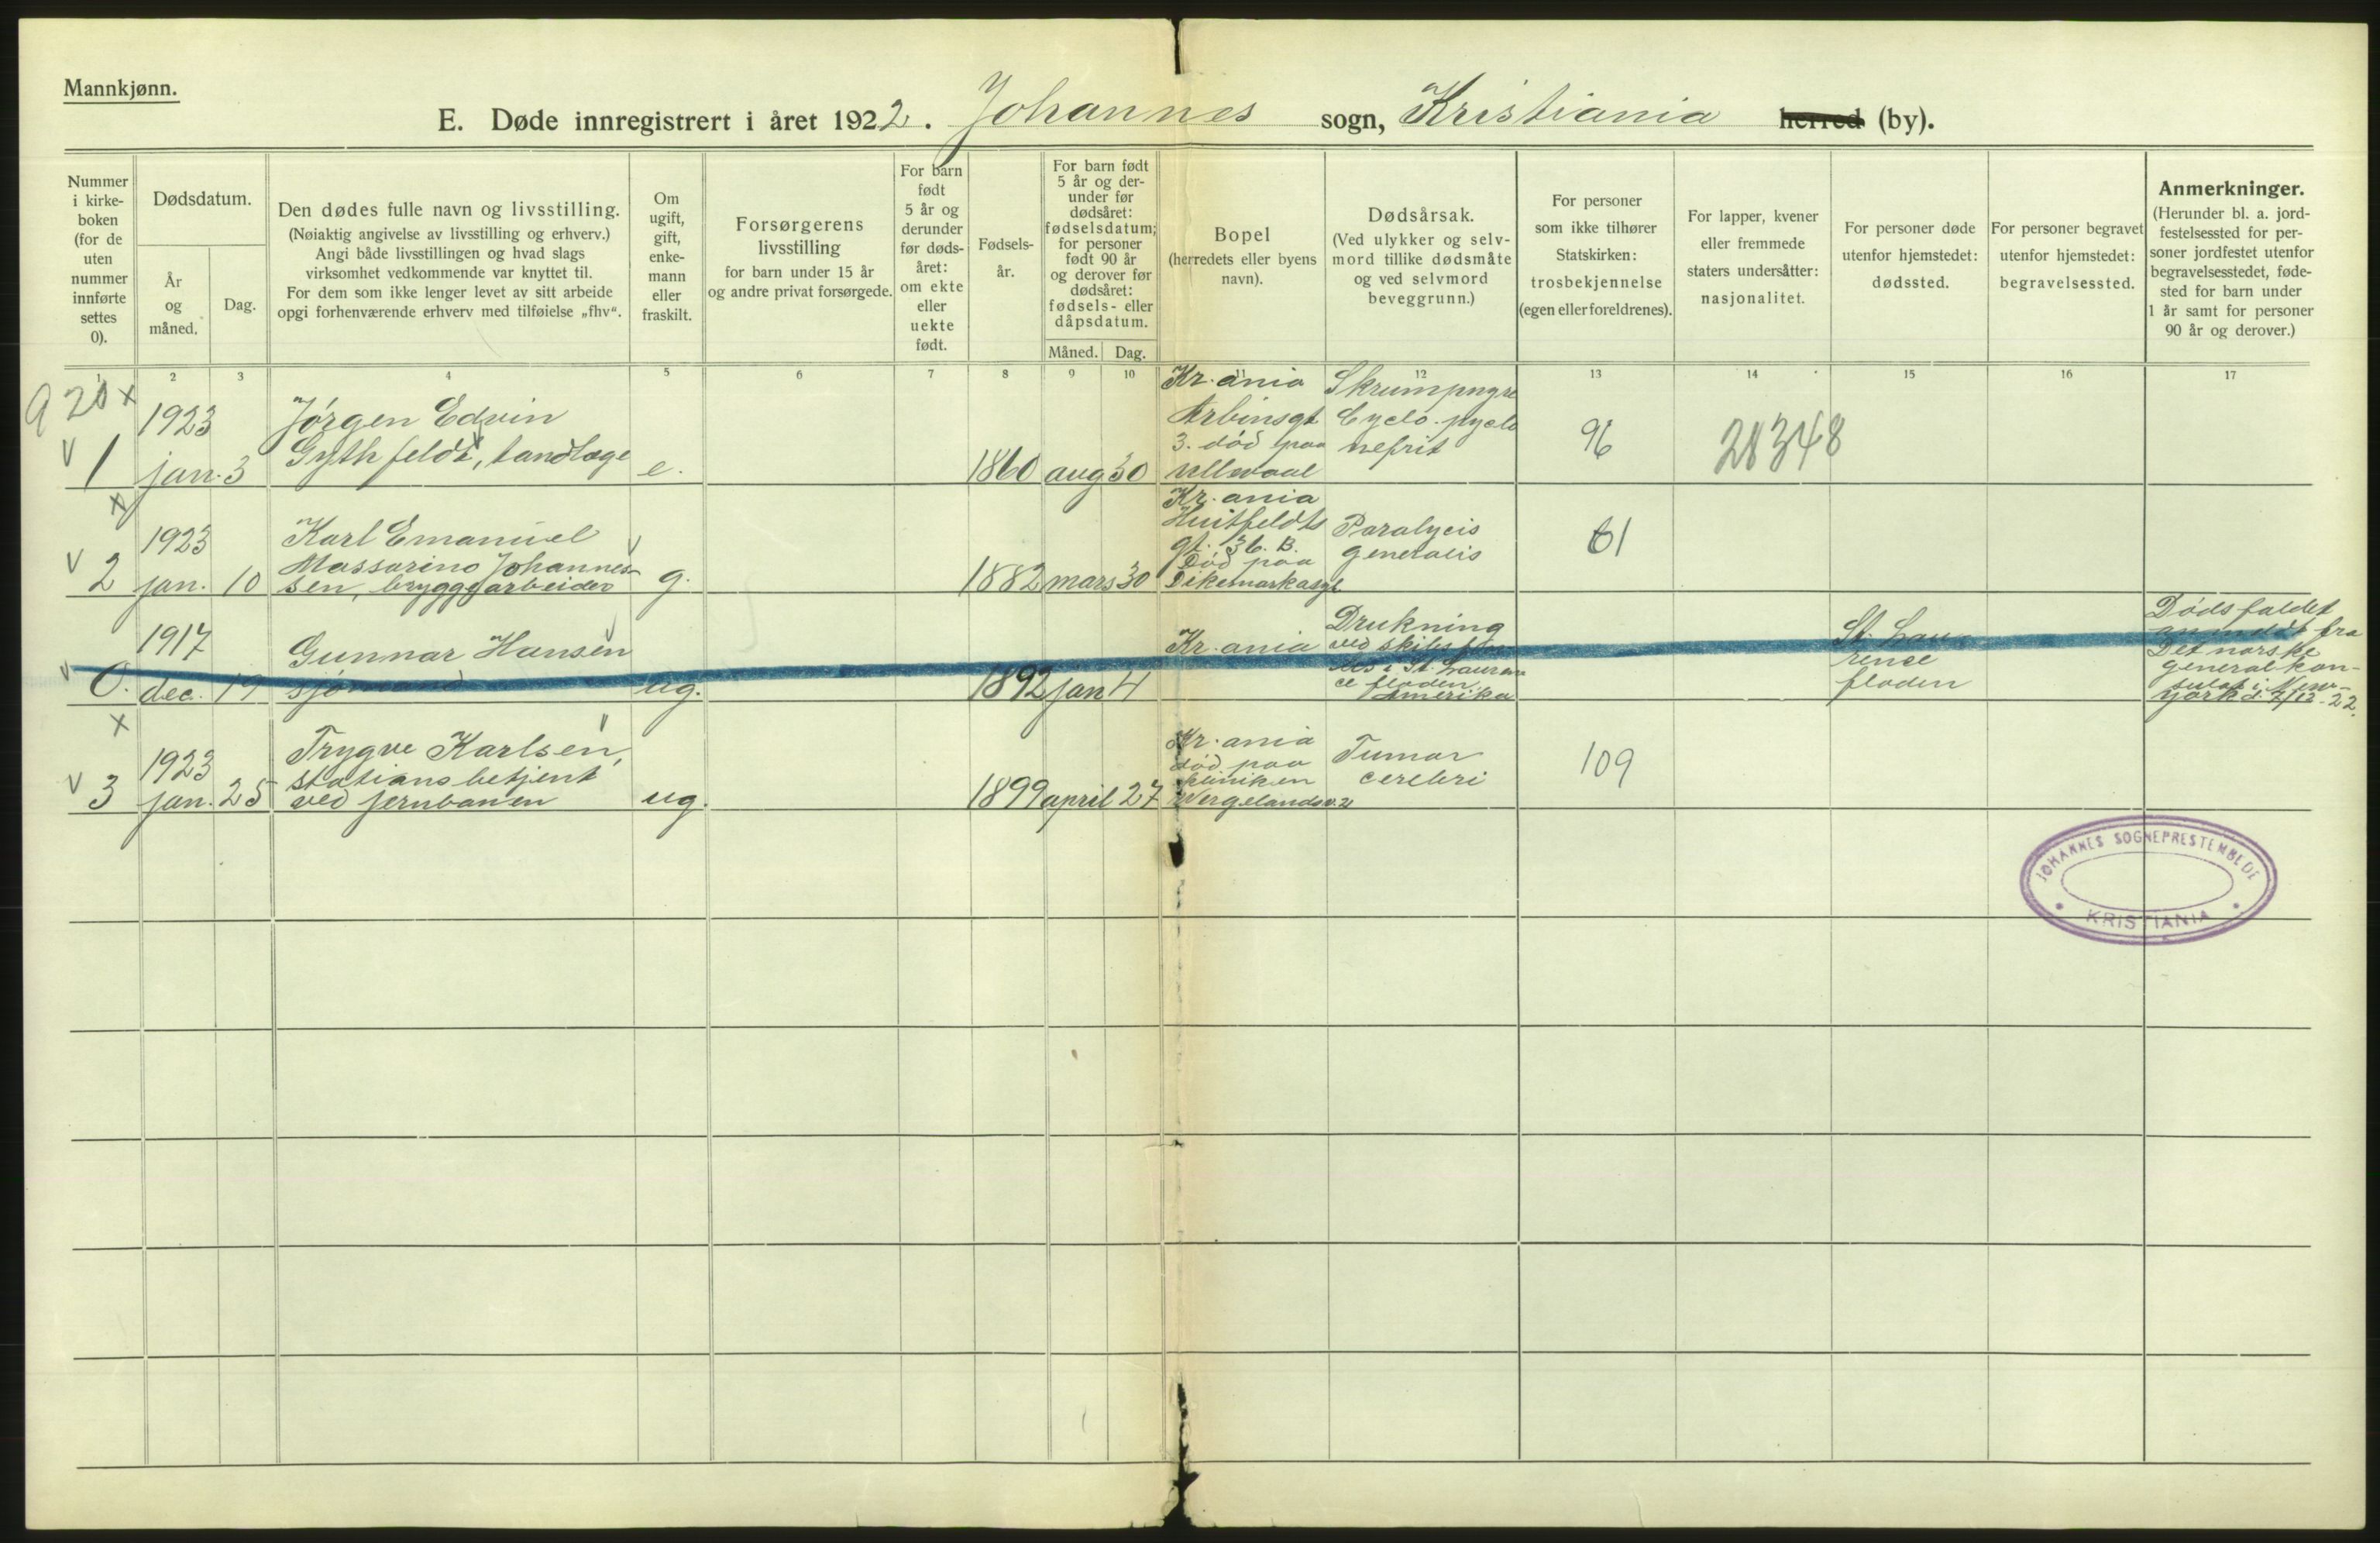 Mannkjønn.
E. Døde innregistrert i året 1922. Johannes sogn, Kristiania herred (by).
Nummer
i kirke-
boken
(for de
uten
nummer
innførte
settes
0).
Dødsdatum.
År
og
måned.
Dag.
Den dødes fulle navn og livsstilling.
(Nøiaktig angivelse av livsstilling og erhverv.)
Angi både livsstillingen og hvad slags
virksomhet vedkommende var knyttet til.
For dem som ikke lenger levet av sitt arbeide
opgi forhenværende erhverv med tilføielse „fhv“.
Om
ugift,
gift,
enke-
mann
eller
fraskilt.
Forsørgerens
livsstilling
for barn under 15 år
og andre privat forsørgede.
For barn
født
5 år og
derunder
før døds-
året:
om ekte
eller
uekte
født.
Fødsels-
år.
For barn født
5 år og der-
under før
dødsåret:
fødselsdatum;
for personer
født 90 år
og derover før
dødsåret:
fødsels- eller
dåpsdatum.
Måned.
Dag.
Bopel
(herredets eller byens
navn).
Dødsårsak.
(Ved ulykker og selv-
mord tillike dødsmåte
og ved selvmord
beveggrunn.)
For personer
som ikke tilhører
Statskirken:
trosbekjennelse
(egen eller foreldrenes).
For lapper, kvener
eller fremmede
staters undersåtter:
nasjonalitet.
For personer døde
utenfor hjemstedet:
dødssted.
For personer begravet
utenfor hjemstedet:
begravelsessted.
Anmerkninger.
(Herunder bl. a. jord-
festelsessted for per-
soner jordfestet utenfor
begravelsesstedet, føde-
sted for barn under
1 år samt for personer
90 år og derover.)
1 2 3 4 5 6 7 8 9 10 11 12 13 14 15 16 17
920 x
v 1
1923
jan. 3
Jörgen Edvin
Gythfeldt, tandlæge
e.
1860 aug 30
Kr.ania
Arbinsgt
3. död paa
Ullevaal
Skrumpnyre
Cyclo-pyelo
nefrit
96
28348
x
v 2
1923
jan. 10
Karl Emanuel
Massarino Johannes-
sen, bryggearbeider
g.
1882 mars 30
Kr.ania
Huitfeldts
gt. 36. B.
Död paa
Dikemarkasyl
Paralysis
generalis
61
v 0.
1917
dec. 19
Gunnar Hansen
sjömand
ug.
1892 jan 4
Kr.ania
Drukning
ved
i St. Lauren
ce floden
Amerika
St. Lau
rence
floden
Dödsfaldet
fra
Det norske
generalkon-
sulat i New-
york d. 7/12-22.
x
v 3
1923
jan. 25
Trygve Karlsen,
stationsbetjent
ved jernbanen
ug.
1899 april 27
Kr.ania
död paa
kliniken
Wergelandsv. 2
Tumor
cerebri
109
JOHANNES SOGNEPRESTEMBEDE
KRISTIANIA